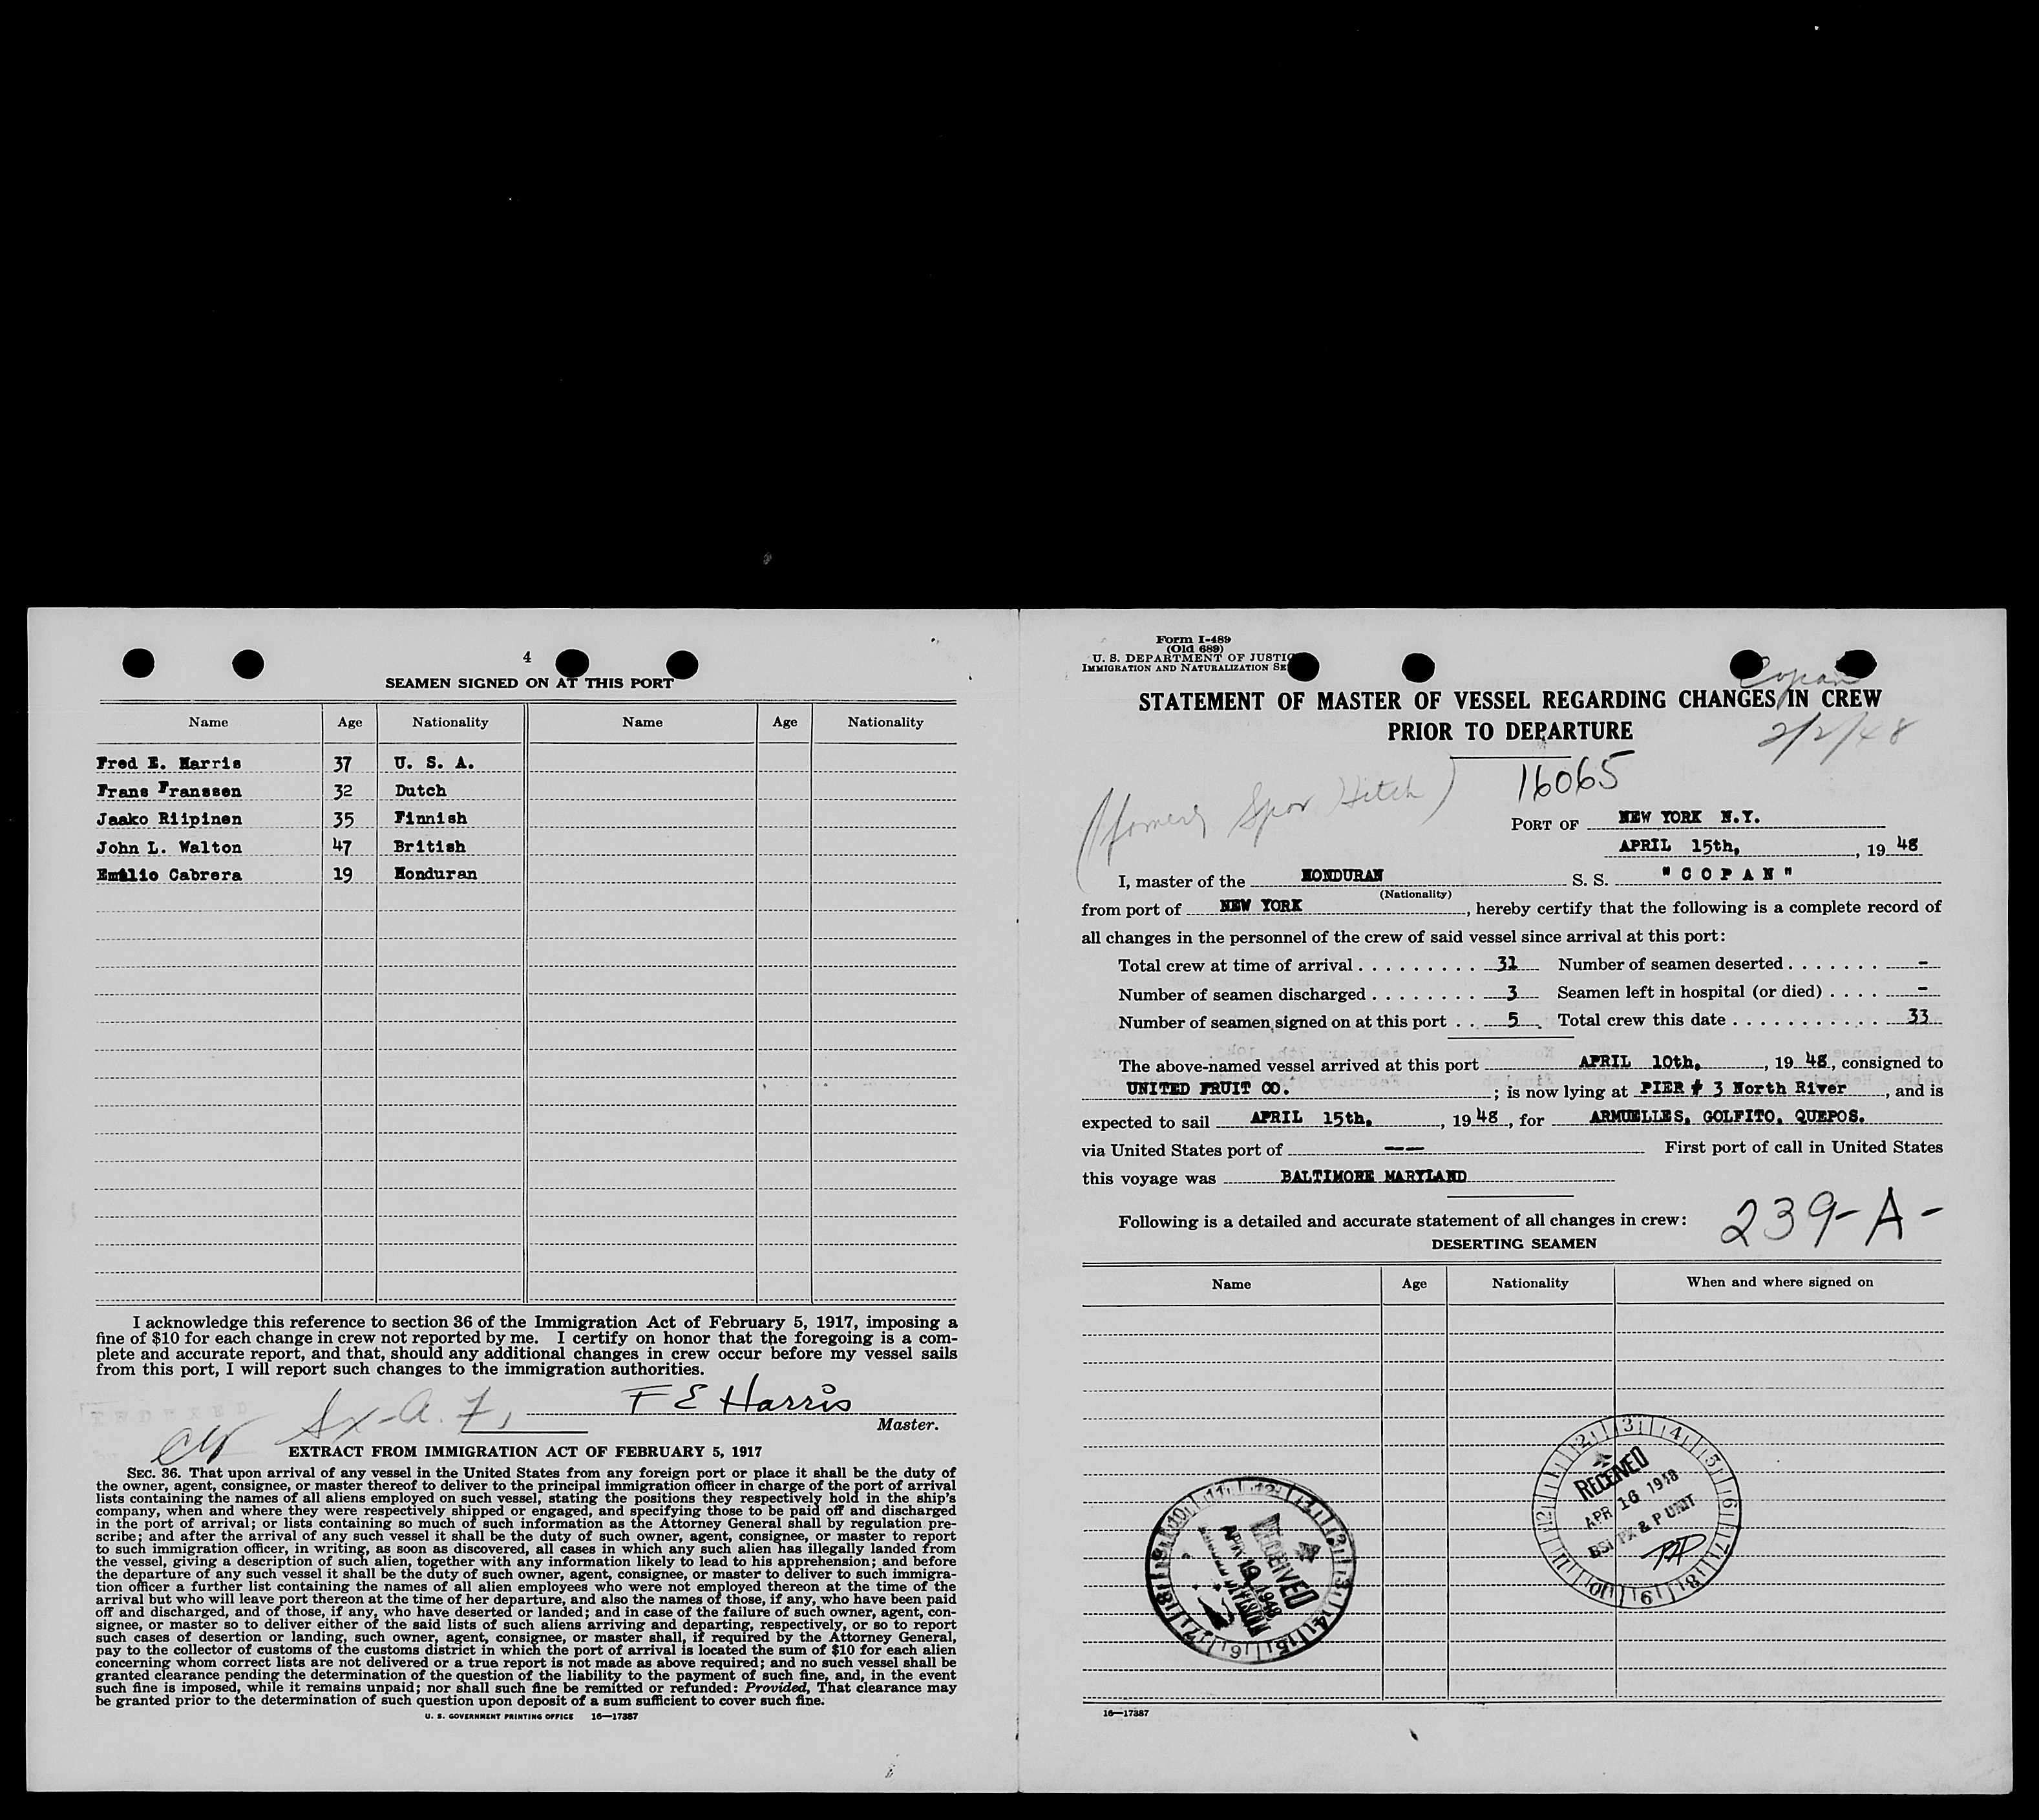 4
SEAMEN SIGNED ON AT THIS PORT
Name Age Nationality Name Age Nationality
Fred E. Harris 37 U. S. A.
Frans Franssen 32 Dutch
Jaako Riipinen 35 Finnish
John L. Walton 47 British
Emilio Cabrera 19 Honduran
I acknowledge this reference to section 36 of the Immigration Act of February 5, 1917, imposing a
fine of $10 for each change in crew not reported by me. I certify on honor that the foregoing is a com-
plete and accurate report, and that, should any additional changes in crew occur before my vessel sails
from this port, I will report such changes to the immigration authorities.
F E Harris
Master.
INDEXED
EXTRACT FROM IMMIGRATION ACT OF FEBRUARY 5, 1917
SEC. 36. That upon arrival of any vessel in the United States from any foreign port or place it shall be the duty of
the owner, agent, consignee, or master thereof to deliver to the principal immigration officer in charge of the port of arrival
lists containing the names of all aliens employed on such vessel, stating the positions they respectively hold in the ship's
company, when and where they were respectively shipped or engaged, and specifying those to be paid off and discharged
in the port of arrival; or lists containing so much of such information as the Attorney General shall by regulation pre-
scribe; and after the arrival of any such vessel it shall be the duty of such owner, agent, consignee, or master to report
to such immigration officer, in writing, as soon as discovered, all cases in which any such alien has illegally landed from
the vessel, giving a description of such alien, together with any information likely to lead to his apprehension; and before
the departure of any such vessel it shall be the duty of such owner, agent, consignee, or master to deliver to such immigra-
tion officer a further list containing the names of all alien employees who were not employed thereon at the time of the
arrival but who will leave port thereon at the time of her departure, and also the names of those, if any, who have been paid
off and discharged, and of those, if any, who have deserted or landed; and in case of the failure of such owner, agent, con-
signee, or master so to deliver either of the said lists of such aliens arriving and departing, respectively, or so to report
such cases of desertion or landing, such owner, agent, consignee, or master shall, if required by the Attorney General,
pay to the collector of customs of the customs district in which the port of arrival is located the sum of $10 for each alien
concerning whom correct lists are not delivered or a true report is not made as above required; and no such vessel shall be
granted clearance pending the determination of the question of the liability to the payment of such fine, and, in the event
such fine is imposed, while it remains unpaid; nor shall such fine be remitted or refunded: Provided, That clearance may
be granted prior to the determination of such question upon deposit of a sum sufficient to cover such fine.
U. S. GOVERNMENT PRINTING OFFICE 16—17387
Form I-489
(Old 689)
U. S. DEPARTMENT OF JUSTIC
IMMIGRATION AND NATURALIZATION SE
Copan
STATEMENT OF MASTER OF VESSEL REGARDING CHANGES IN CREW
PRIOR TO DEPARTURE
2/2/48
16065
(formerly Spar Hitch)
PORT OF NEW YORK N.Y.
APRIL 15th, , 19 48
I, master of the HONDURAN S. S. " C O P A N "
(Nationality)
from port of NEW YORK , hereby certify that the following is a complete record of
all changes in the personnel of the crew of said vessel since arrival at this port:
Total crew at time of arrival . . . . . . . . . . 31 Number of seamen deserted . . . . . . . -
Number of seamen discharged . . . . . . . . 3 Seamen left in hospital (or died) . . . . -
Number of seamen signed on at this port . . 5 Total crew this date . . . . . . . . . . . . 33
The above-named vessel arrived at this port APRIL 10th, , 19 48, consigned to
UNITED FRUIT CO. ; is now lying at PIER # 3 North River , and is
expected to sail APRIL 15th, , 19 48, for ARMUELLES, GOLFITO, QUEPOS.
via United States port of -- First port of call in United States
this voyage was BALTIMORE MARYLAND
Following is a detailed and accurate statement of all changes in crew:
239-A-
DESERTING SEAMEN
Name Age Nationality When and where signed on
RECEIVED
APR 16 1948
BSI PX & P UNIT
RECEIVED
APR 19 1948
16—17387